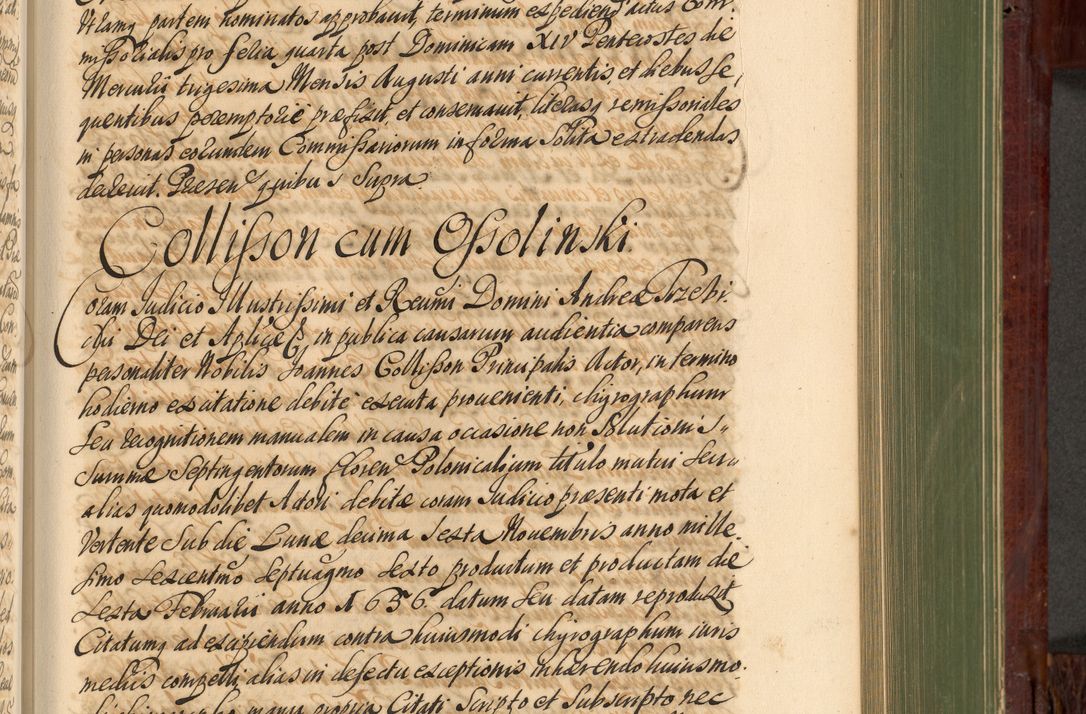 Utramq partem nominatos approbavit, terminum expediens actus Com
missorialis pro feria quarta post Dominicam XIV Pentecostes die
Mercurii trigesima Mensis Augusti anni currentis, et diebus se,
quentibus peremptorie præfixit, et conservauit, literasq remissoriales
in personas eorumdem Commissariorum in forma solita extradendas
decreuit. Præsen quibus Supra
Collisson cum Ossolinski.
Coram Judicio Illustrissimi et Reumi Domini Andreæ Trzebi
cki Dei et Aplicæ &, in publica causarum audientia comparens
personaliter Nobilis Joannes Collisson Principalis Actor, in termino
hodierno ex citatione debite executa prouenienti, chyrographum
seu recognitionem manualem in causa occasione non solutionis
summæ Septingentorum floren Polonicalium titulo mutui seu
alias quomodolibet Actori debitæ coram Judicio præsenti mota et
Vertente sub die Lunæ decima sexta Nouembris anno mille,
simo sexcentmo septuagmo sexto productum et productam die
sexta Februarii anno 1656. datum seu datam reproduxit
Citatumq ad excipiendum contra huiusmodi chyrographum iuris
mediis compelli alias in defectu exceptionis inhærendo huiusmo,
di chirographo manu propria Citati Scripto et Subscripto nec